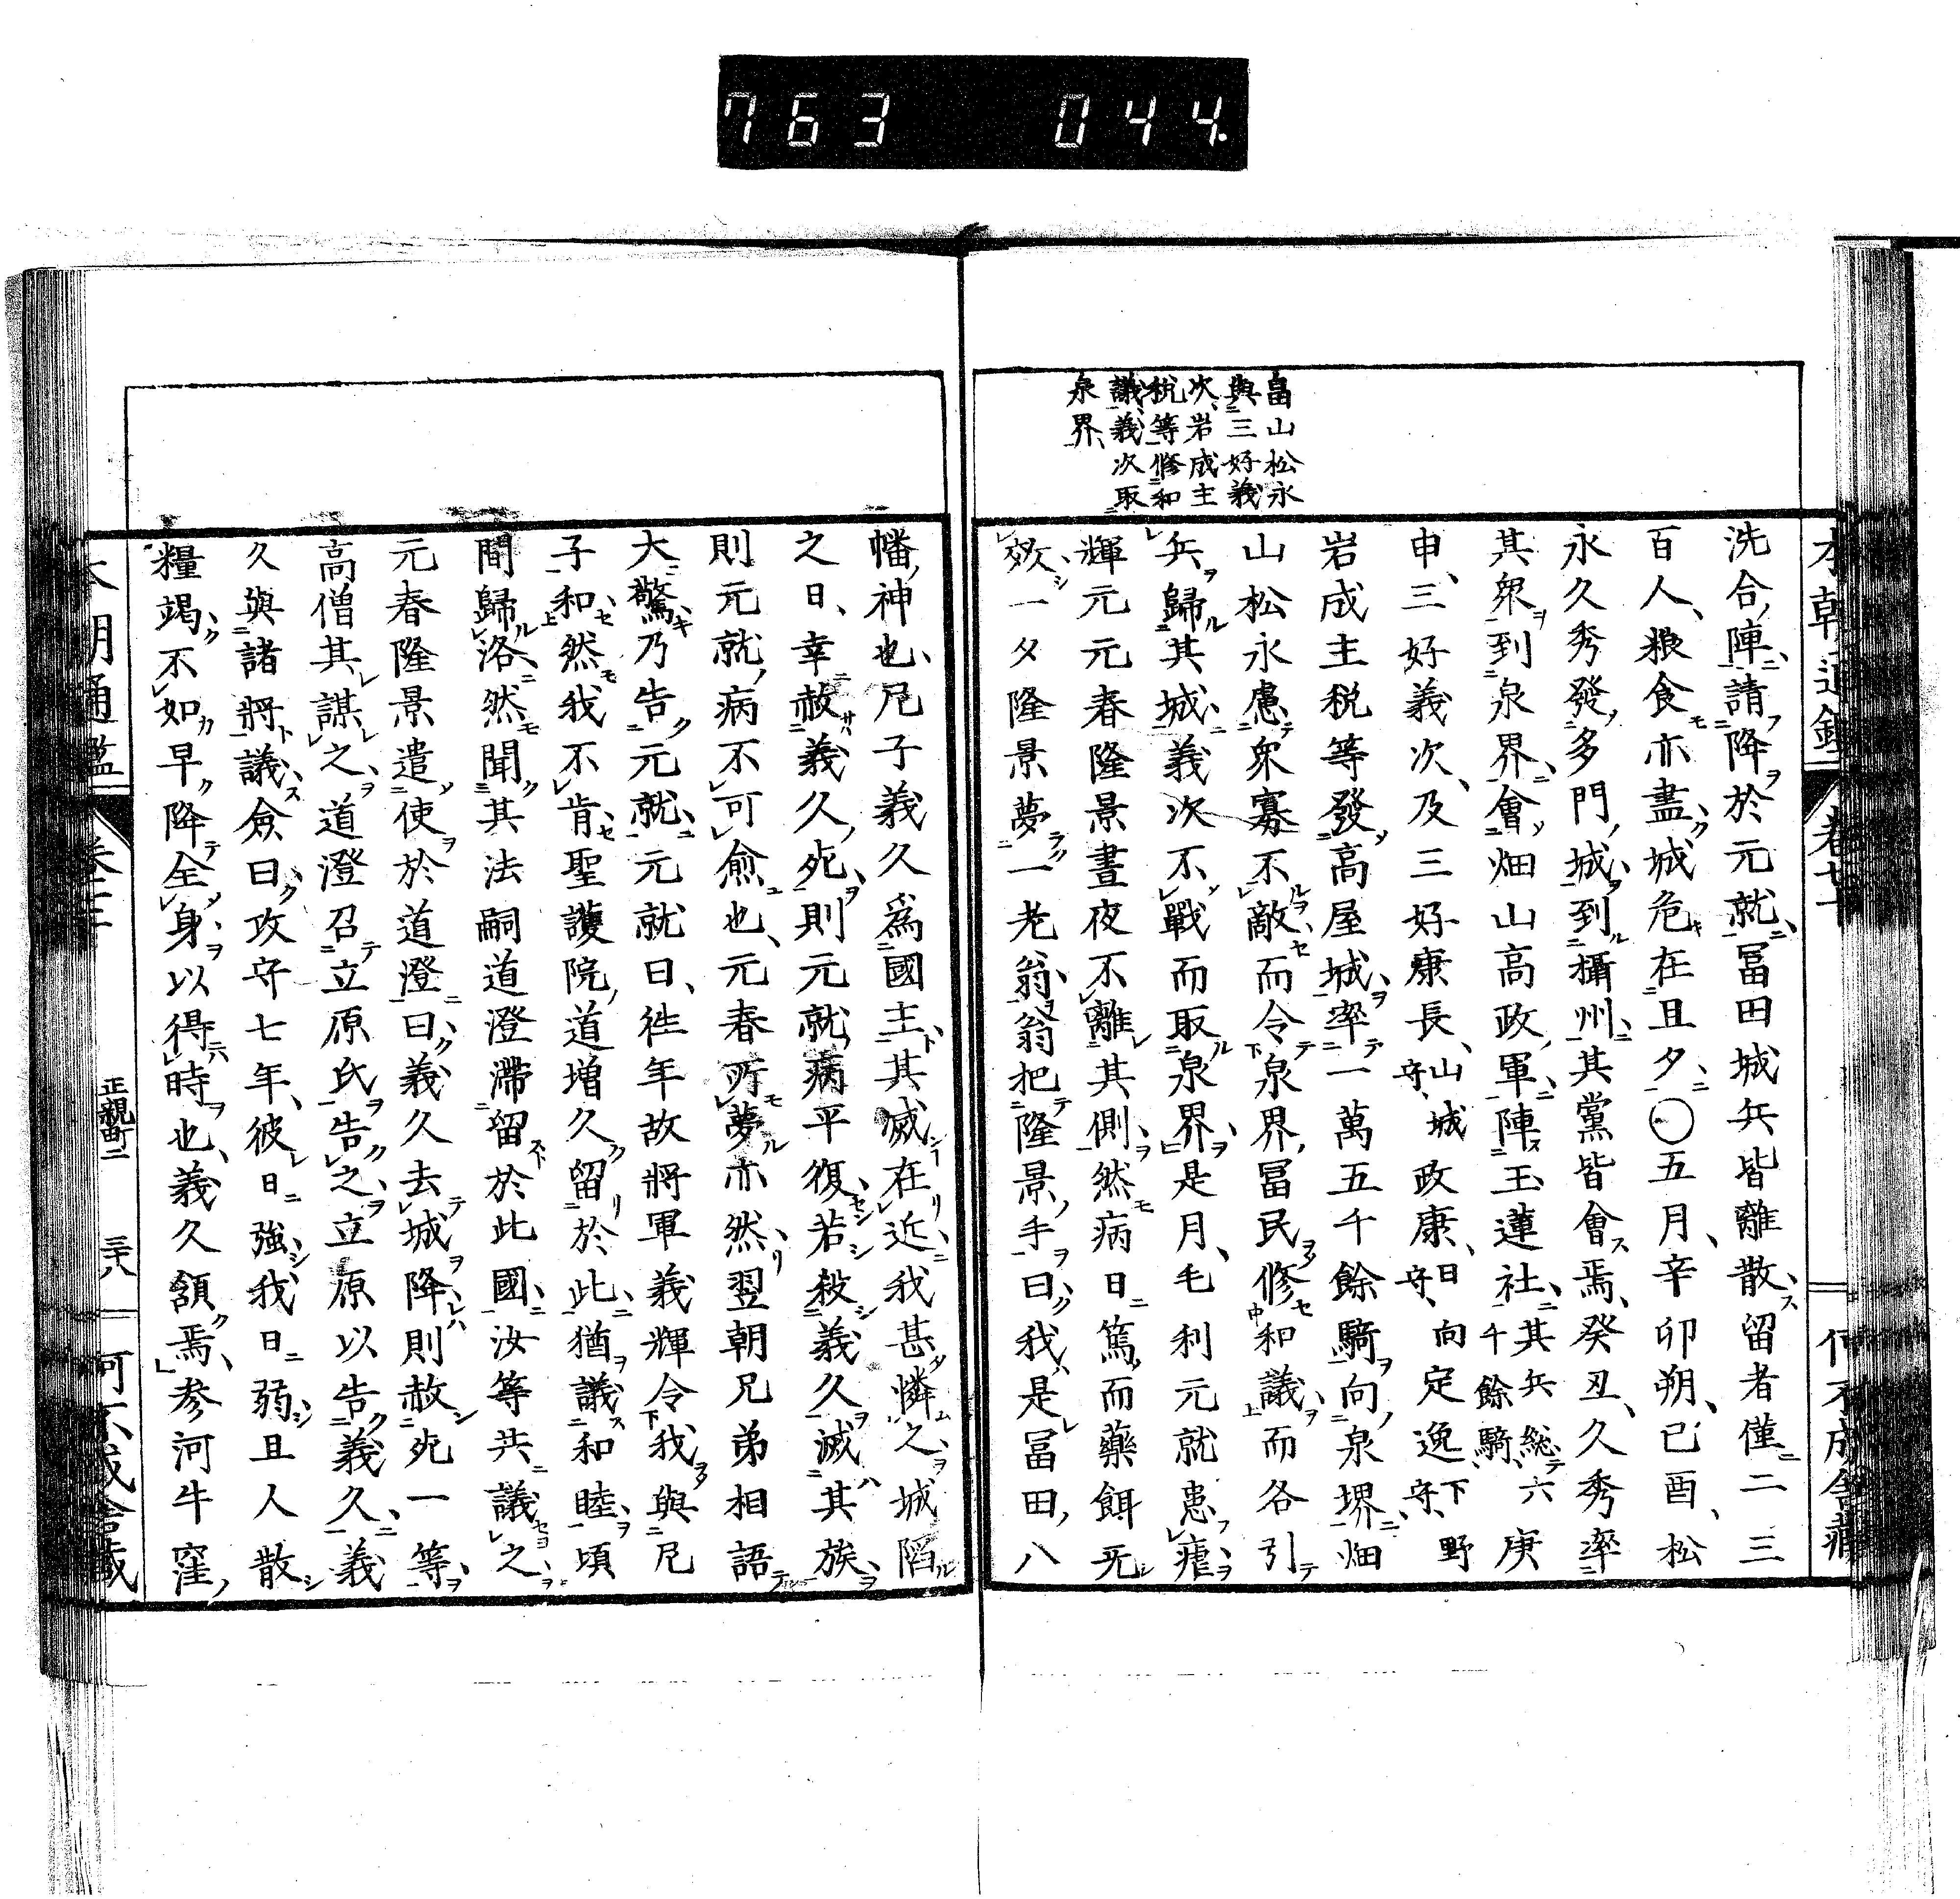 763 044.
畠山松永
與三好義
次岩成主
税等修和
議義次取
泉界
洗合陣請降於元就冨田城兵皆離散留者僅二三
百人粮食亦盡城危在且夕〇五月辛卯朔已酉松
永久秀發多門城到攝州其黨皆會焉癸丑久秀率
其衆到泉界會畑山高政軍陣玉蓮社其兵総六千餘騎庚
申三好義次及三好康長山城守政康日向守定逸下野守
岩成主税等發高屋城率一萬五千餘騎向泉堺畑
山松永慮衆寡不敵而令泉界冨民修和議而各引
兵歸其城義次不戰而取泉界是月毛利元就患瘧
輝元元春隆景晝夜不離其側然病日篤而藥餌无
效一夕隆景夢一老翁翁把隆景手曰我是冨田八
幡神也尼子義久爲國主其滅在近我甚憐之城陷
之日幸赦義久死則元就病平復若殺義久滅其族
則元就病不可愈也元春所夢亦然翌朝兄弟相語
大驚乃告元就元就曰往年故將軍義輝令我與尼
子和然我不肯聖護院道増久留於此猶議和睦頃
間歸洛然聞其法嗣道澄滯留於此國汝等共議之
元春隆景遣使於道澄曰義久去城降則赦死一等
高僧其謀之道澄召立原氏告之立原以告義久義
久與諸將議僉曰攻守七年彼日強我日弱且人散
糧竭不如早降全身以得時也義久頷焉参河牛窪
本朝通鑑 正親町二 三十八